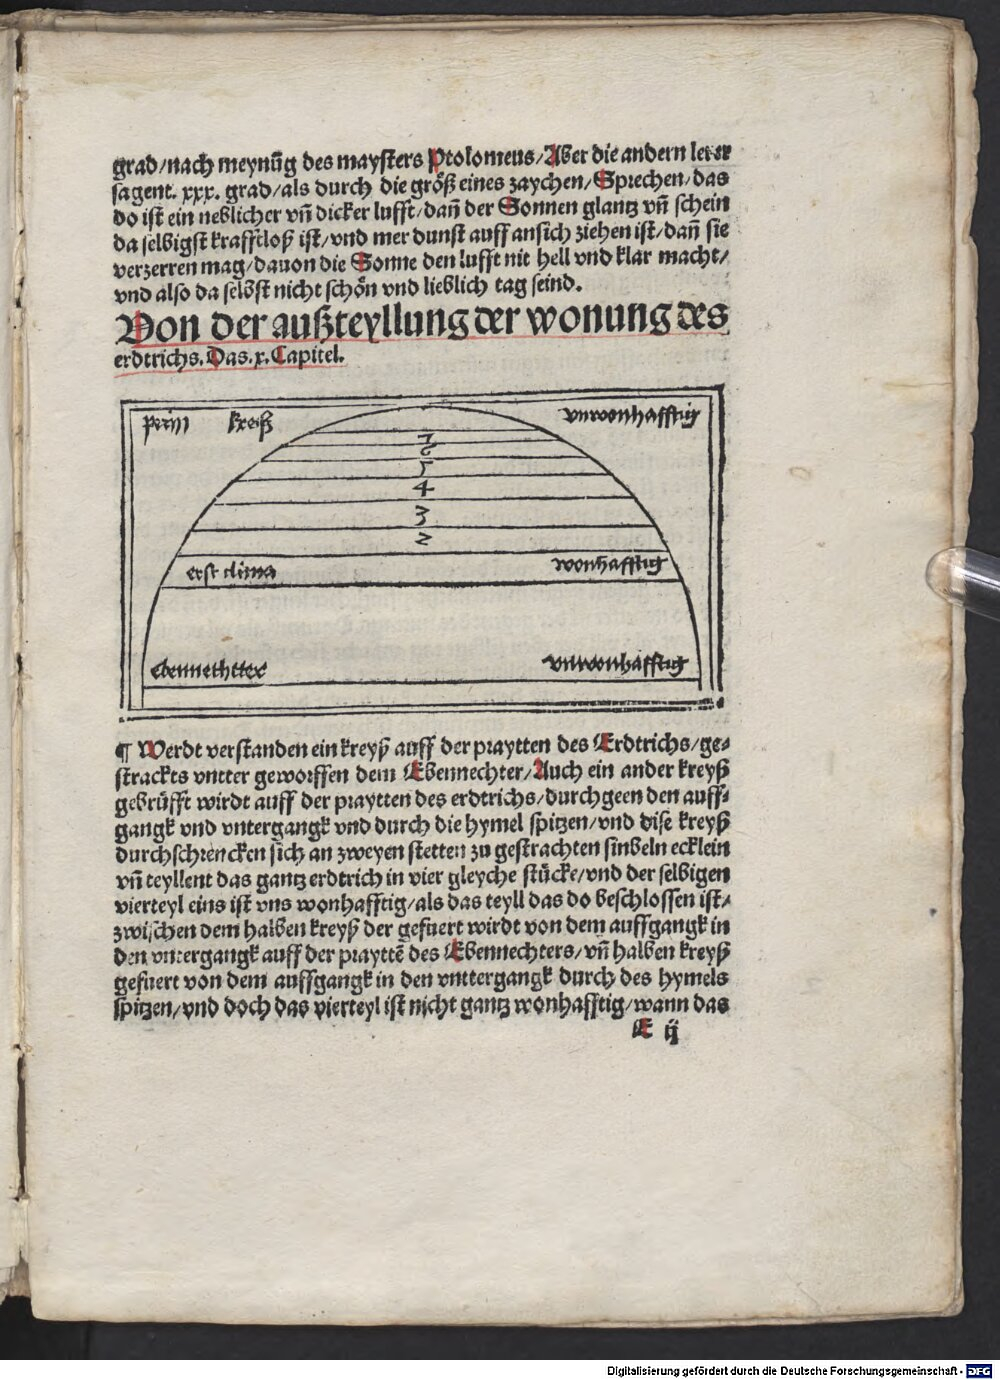 grad/nach meynūg des maysters Ptolomeus/Aber die andern lerer
sagent. xxx. grad/als durch die größ eines zaychen/Sprechen/das
do ist ein neblicher vn̄ dicker lufft/dan̄ der Sonnen glantz vn̄ schein
da selbigst krafftloß ist/vnd mer dunst auff ansich ziehen ist/dan̄ sie
verzerren mag/dauon die Sonne den lufft nit hell vnd klar macht/
vnd also da selbst nicht schön vnd lieblich tag seind.
Von der außteyllung der wonung des
erdtrichs. Das. x. Capitel.
kreiß vnwonhafftig
7
6
5
4
3
2
erst clima wonhafftig
vnwonhafftig
¶ Werdt verstanden ein kreyß auff der praytten des Erdtrichs/ge⸗
strackts vntter geworffen dem Ebennechter/Auch ein ander kreyß
gebrüfft wirdt auff der praytten des erdtrichs/durchgeen den auff⸗
gangk vnd vntergangk vnd durch die hymel spitzen/vnd dise kreyß
durchschrencken sich an zweyen stetten zu gestrachten sinbeln ecklein
vn̄ teyllent das gantz erdtrich in vier gleyche stücke/vnd der selbigen
vierteyl eins ist vns wonhafftig/als das teyll das do beschlossen ist/
zwischen dem halben kreyß der gefuert wirdt von dem auffgangk in
den vntergangk auff der prayttē des Ebennechters/vn̄ halben kreyß
gefuert von dem auffgangk in den vnttergangk durch des hymels
spitzen/vnd doch das vierteyl ist nicht gantz wonhafftig/wann das
E ij
Digitalisierung gefördert durch die Deutsche Forschungsgemeinschaft - DFG